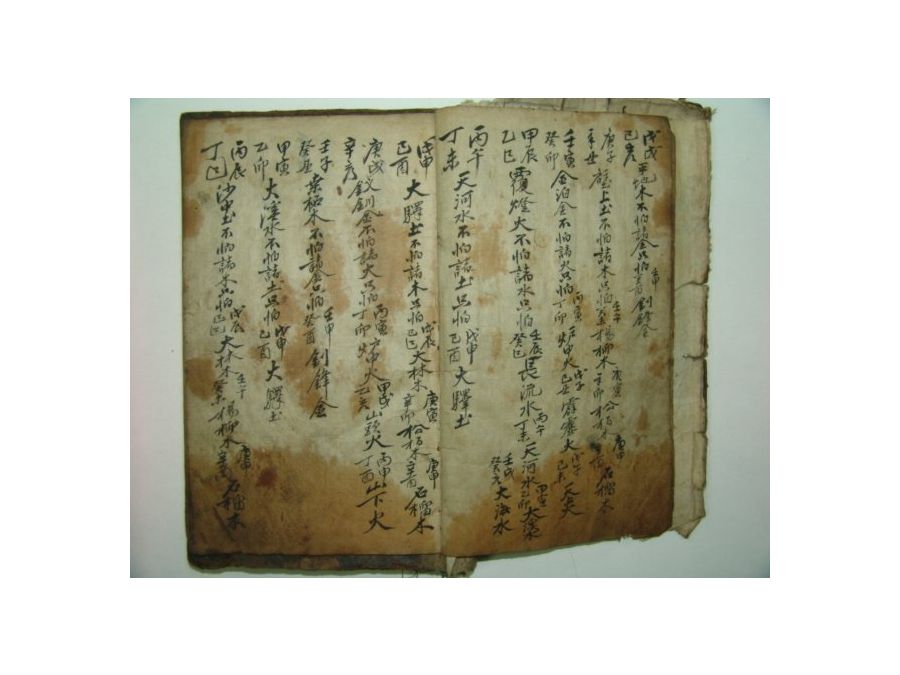 戊戌己亥平地木不怕諸金只怕壬申癸酉釰鋒金
庚子辛丑壁上土不怕諸木只怕壬午癸未楊柳木庚寅辛卯松栢木庚申辛酉石榴木
壬寅癸卯金泊金不怕諸火只怕丙寅丁卯炉中火戊子己丑霹靂火戊午己未天上火
甲辰乙巳覆燈火不怕諸水只怕壬辰癸巳長流水丙午丁未天河水甲寅乙卯大溪水壬戌癸亥大海水
丙午丁未天河水不怕諸土只怕戊申己酉大驛土
戊申己酉大驛土不怕諸木只怕戊辰己巳大林木庚寅辛卯松栢木庚申辛酉石榴木
庚戌辛亥釵釧金不怕諸火只怕丙寅丁卯炉中火甲戌乙亥山頭火丙申丁酉山下火
壬子癸丑桑柘木不怕諸金只怕壬申癸酉釰鋒金
甲寅乙卯大溪水不怕諸土只怕戊申己酉大驛土
丙辰丁巳沙中土不怕諸木只怕戊辰己巳大林木壬午癸未楊柳木庚申辛酉石榴木